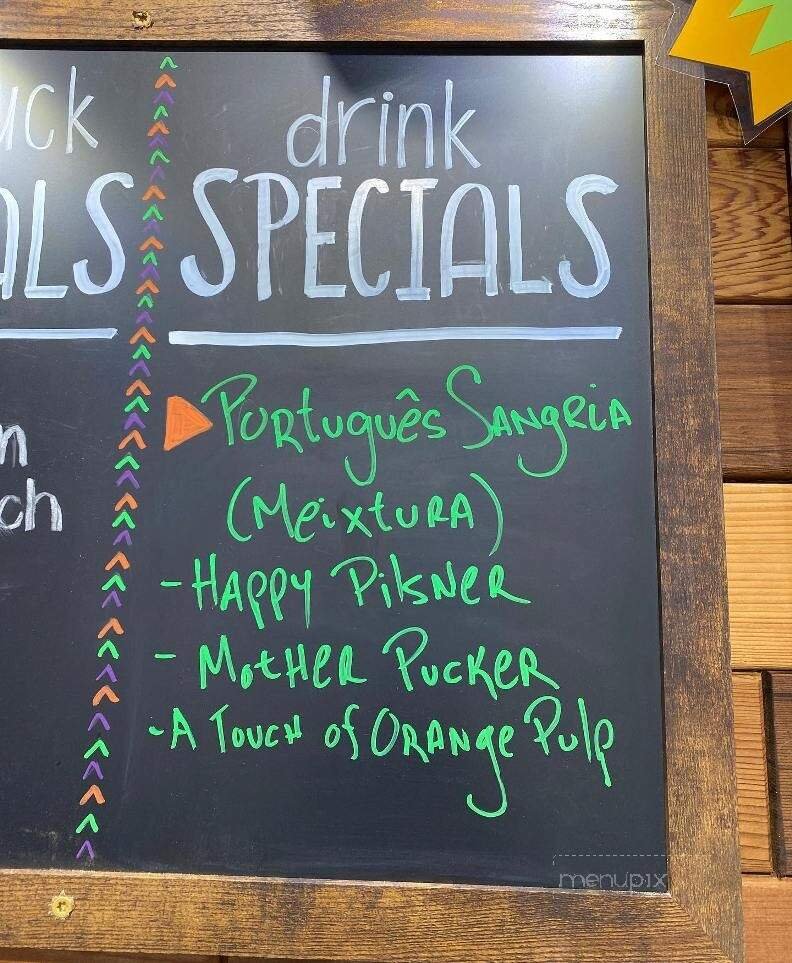 uck
ALS
n
ch
drink
SPECIALS
Português Sangria
(Meixtura)
- Happy Pilsner
- Mother Pucker
- A Touch of Orange Pulp
menupix